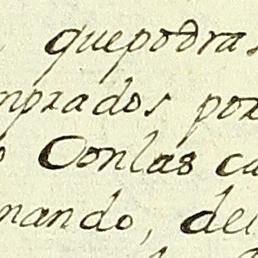 quepodras
mprados por
o Conlas ca
mando, del